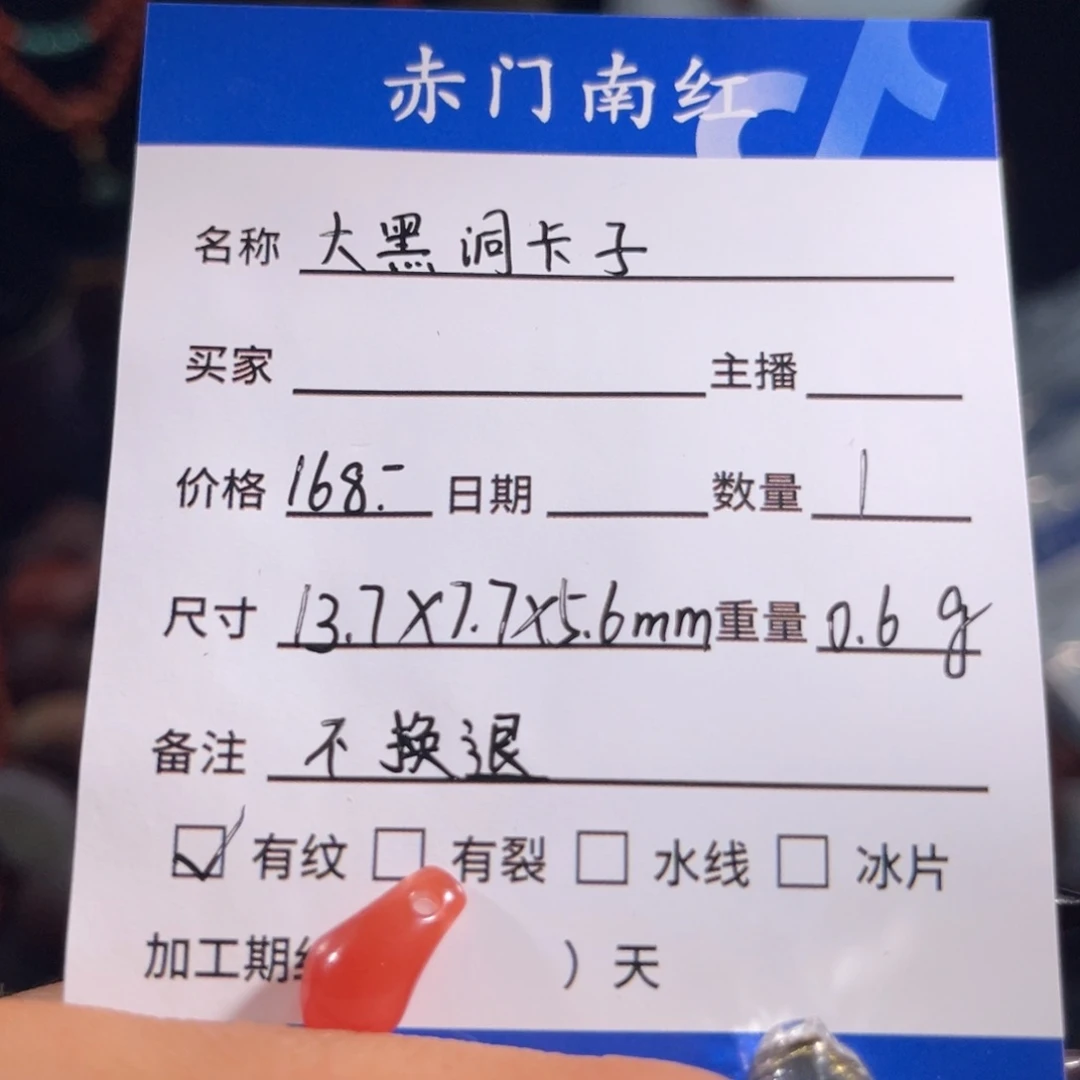 赤门南红
名称 大黑洞卡子
买家 主播
价格 168.- 日期 数量 1
尺寸 13.7X7.7X5.6mm 重量 0.6g
备注 不换退
有纹 有裂 水线 冰片
加工期 ）天